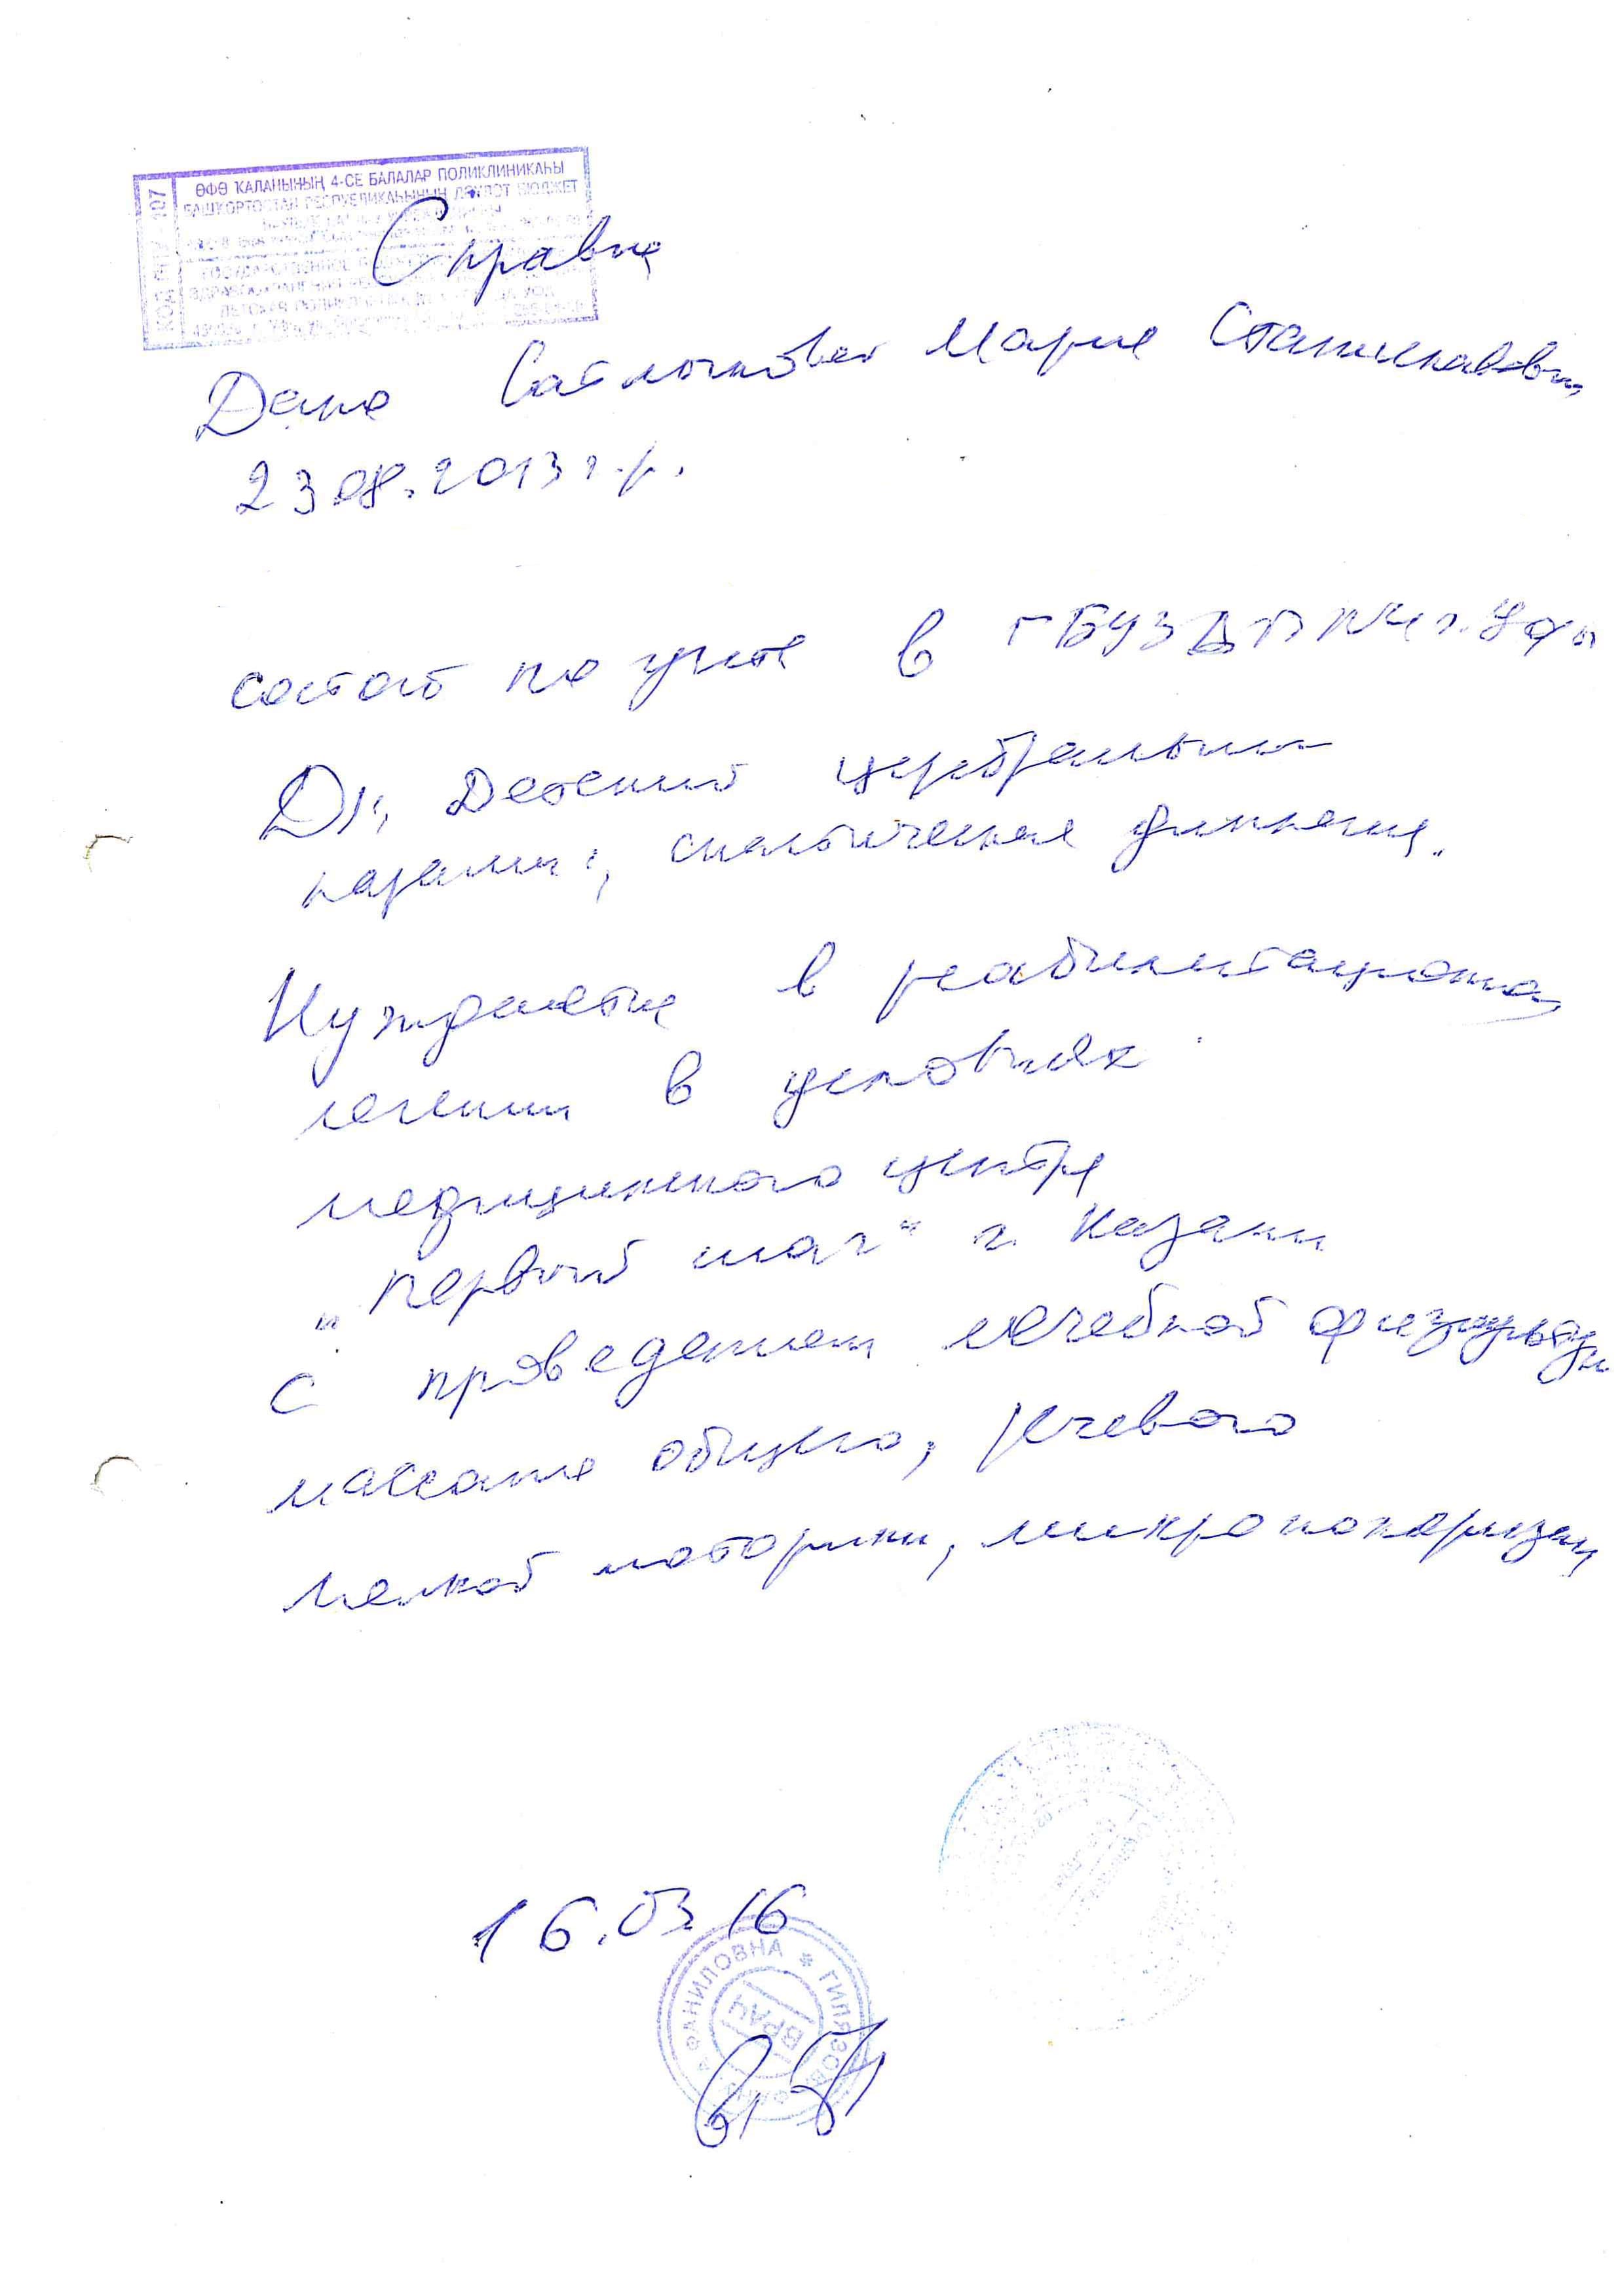 ӨФӨ ҠАЛАҺЫНЫҢ 4-СЕ БАЛАЛАР ПОЛИКЛИНИКАҺЫ
БАШҠОРТОСТАН РЕСПУБЛИКАҺЫНЫҢ ДӘҮЛӘТ БЮДЖЕТ
Справка
Дана Марие Станиславовн
23 08.2013 г.р.
состоит на учете в ГБУЗ ДП №4 г. Уфы
Ds: Детский церебральный
паралич, спастическая диплегия.
Нуждается в реабилитационном
лечении в условиях
медицинского центра
„Первый шаг“ г. Казани
с проведением лечебной физкультуры
массажа общего, речевого
мелкой моторики, микрополяризац
16.03.16
ФАНИЛОВНА * ГИЛЯЗОВА
ВРАЧ